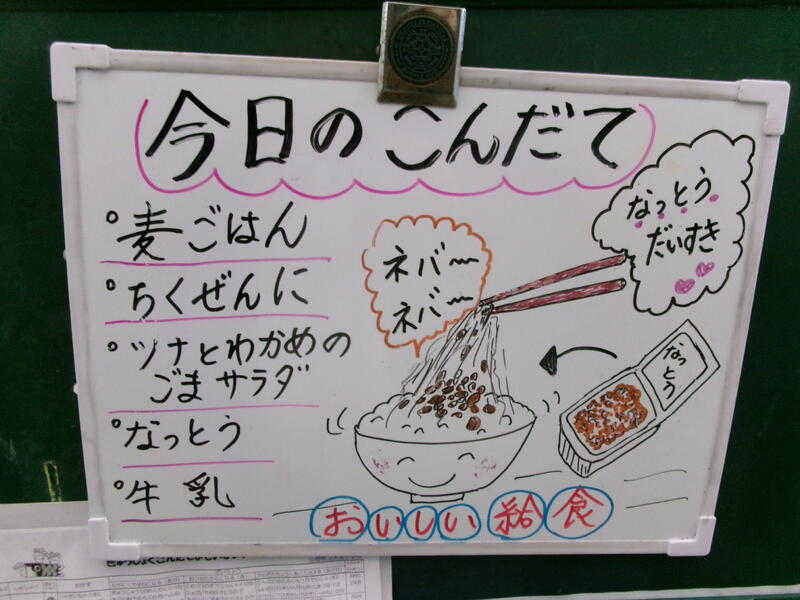 今日のこんだて
°麦ごはん
°ちくぜんに
°ツナとわかめの
ごまサラダ
°なっとう
°牛乳
ネバ～
ネバ～
なっとう
だいすき
なっとう
おいしい給食